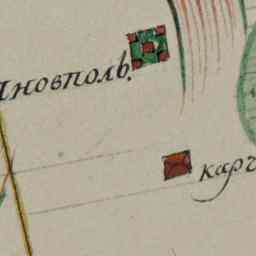 яновполь.
карч